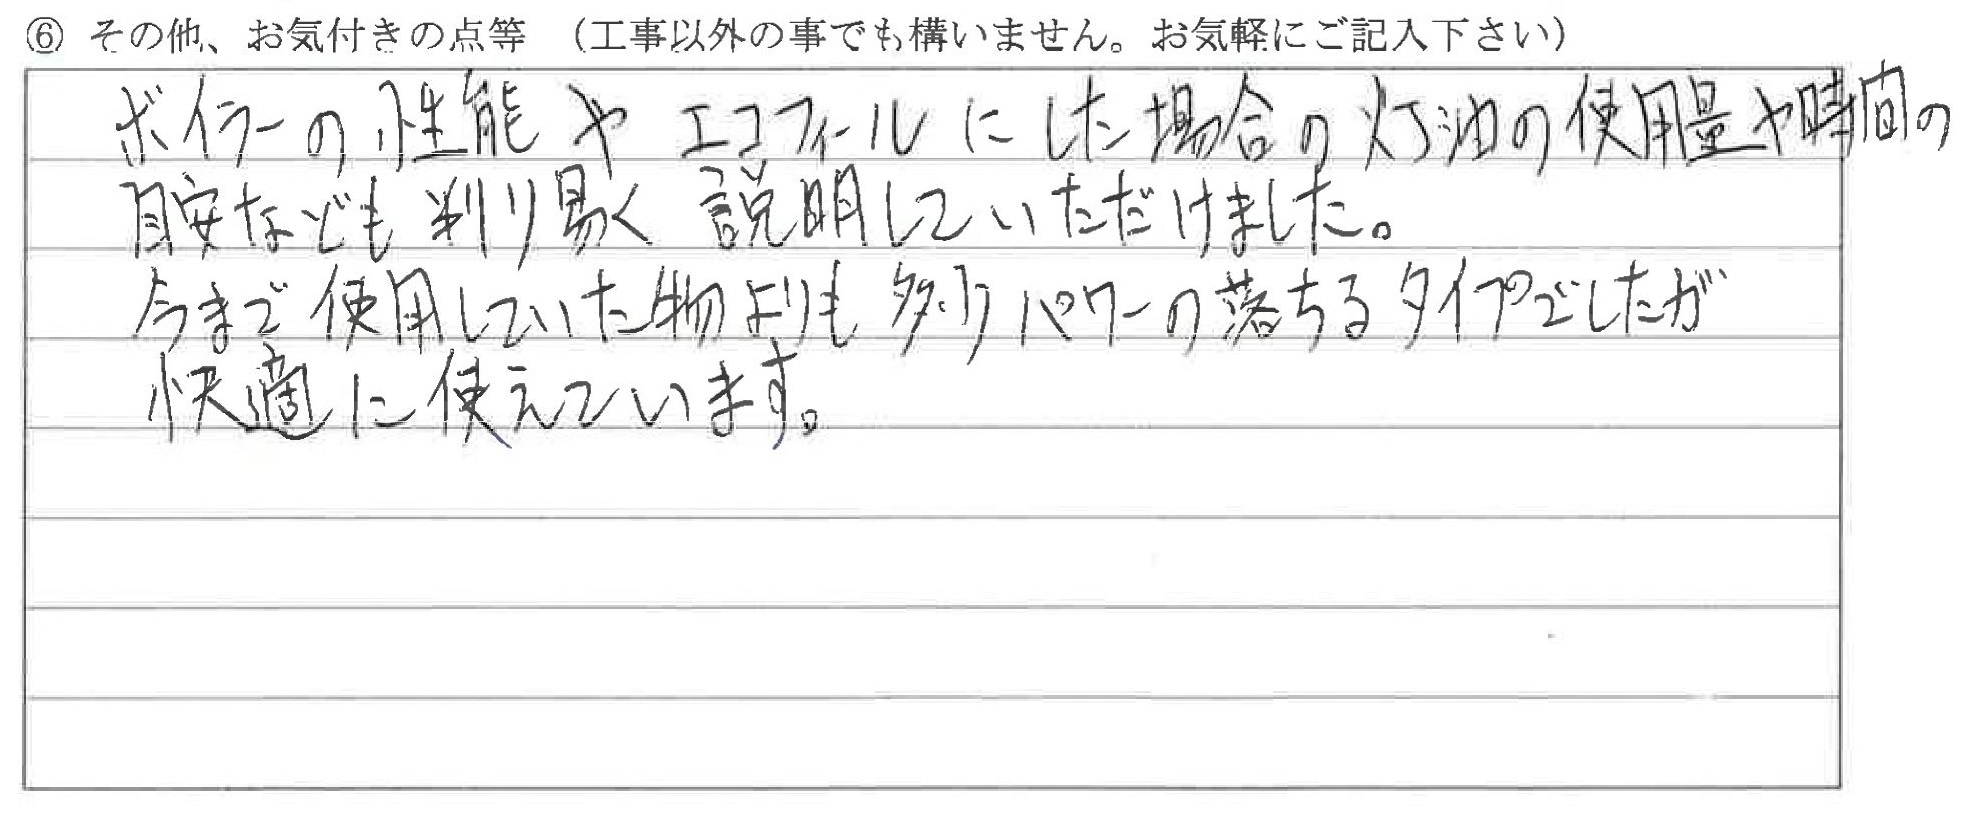 ⑥ その他、お気付きの点等 （工事以外の事でも構いません。お気軽にご記入下さい）
ボイラーの性能や エコフィールにした場合の灯油の使用量や時間の
目安なども判り易く 説明していただけました。
今まで使用していた物よりも多少パワーの落ちるタイプでしたが
快適に使えています。